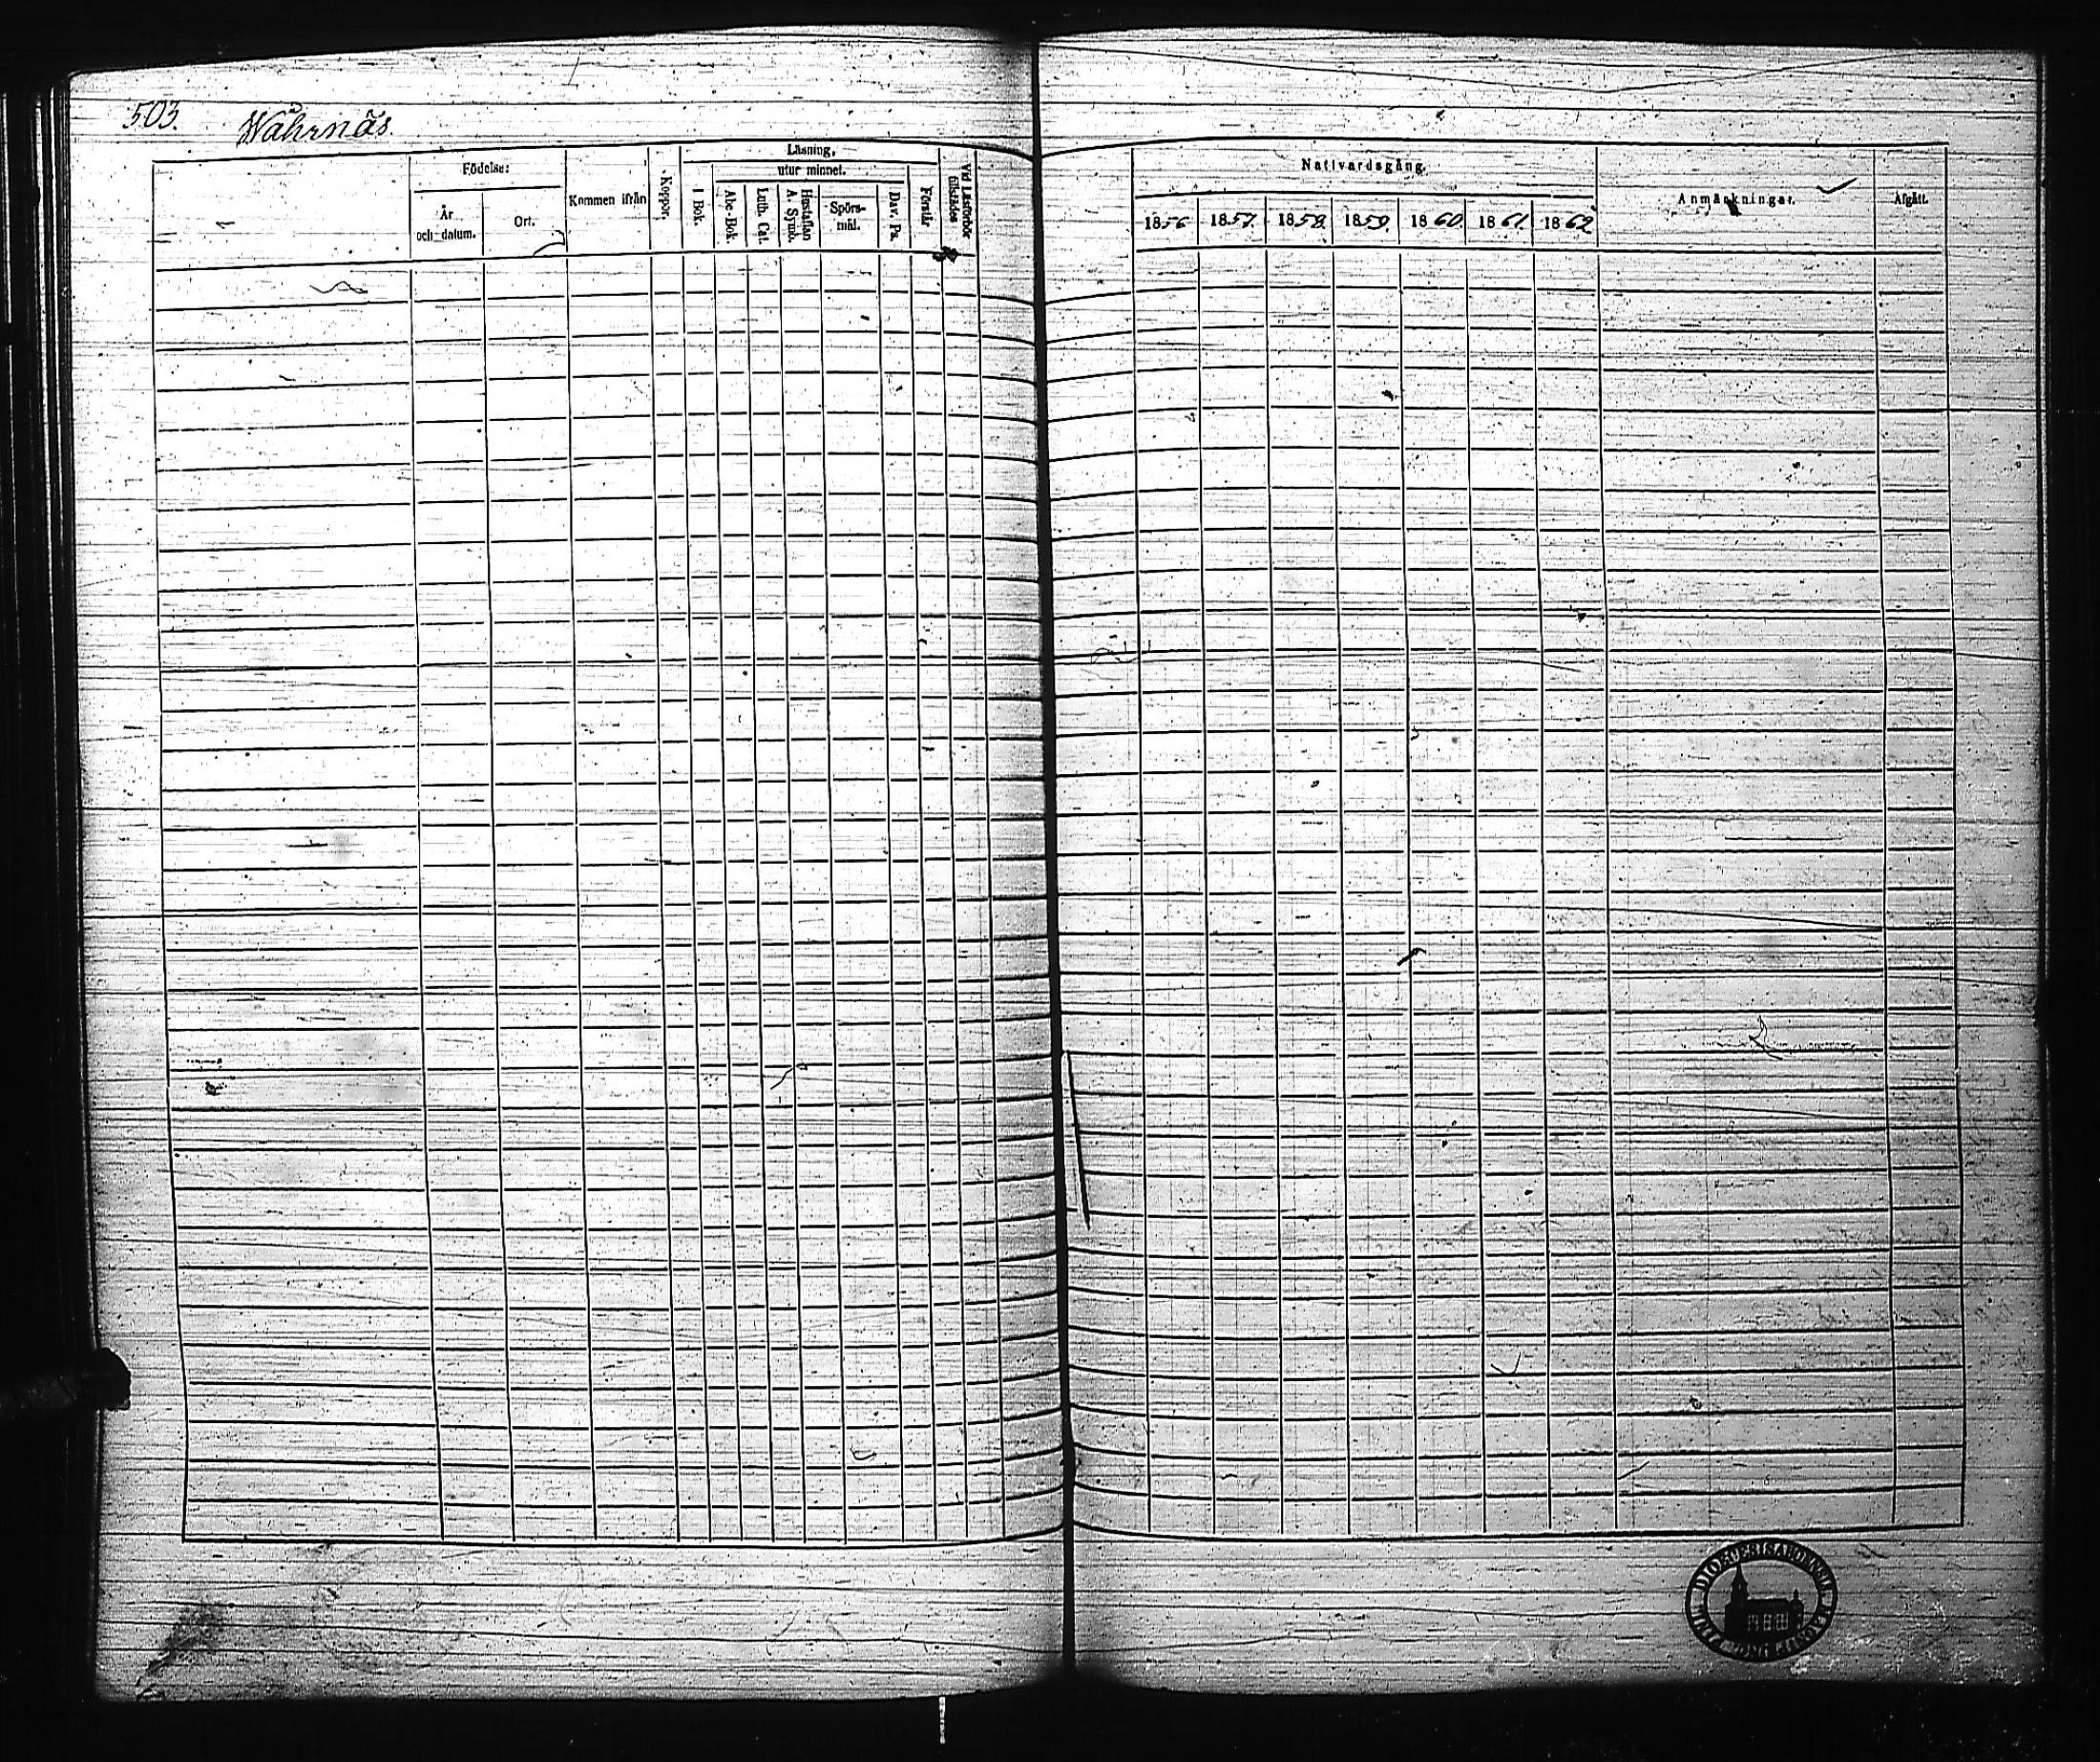 503.
Wåhrnäs.
Födelse:
År och datum.
Ort.
Kommen ifrån
Koppor.
Läsning,
utur minnet.
I Bok.
Abc-Bok.
Luth. Cat.
Hustaflan A. Symb.
Spörsmål.
Dav. Ps.
Förstår
Vid Läsförhör tillstädes
Nattvardsgång.
1856. 1857. 1858. 1859. 1860. 1861. 1862.
Anmärkningar.
Afgått.